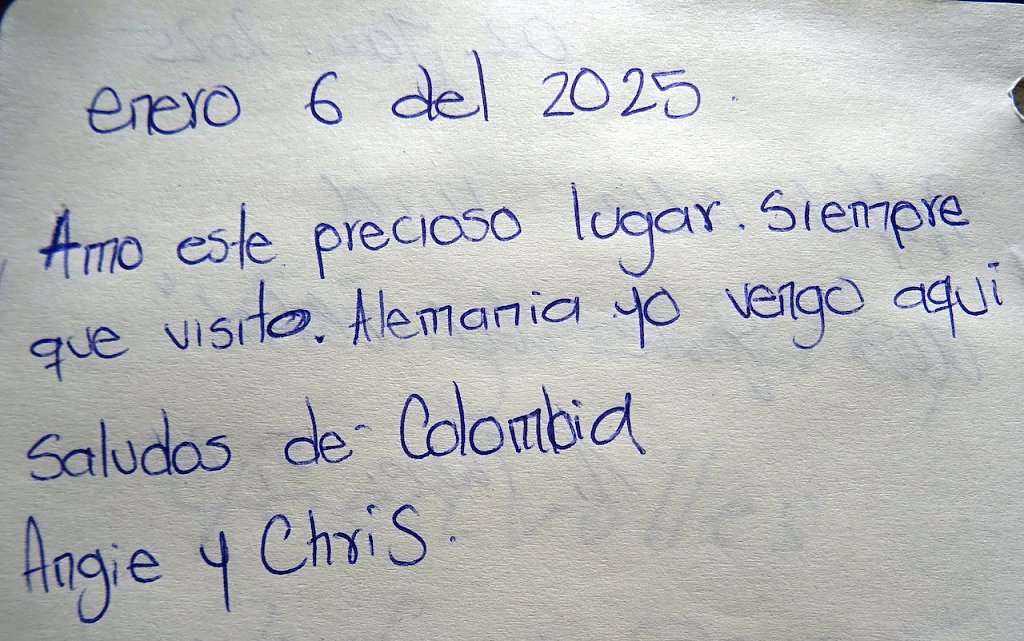 enero 6 del 2025.
Amo este precioso lugar. Siempre
que visito. Alemania yo vengo aqui
Saludos de Colombia
Angie y Chris.